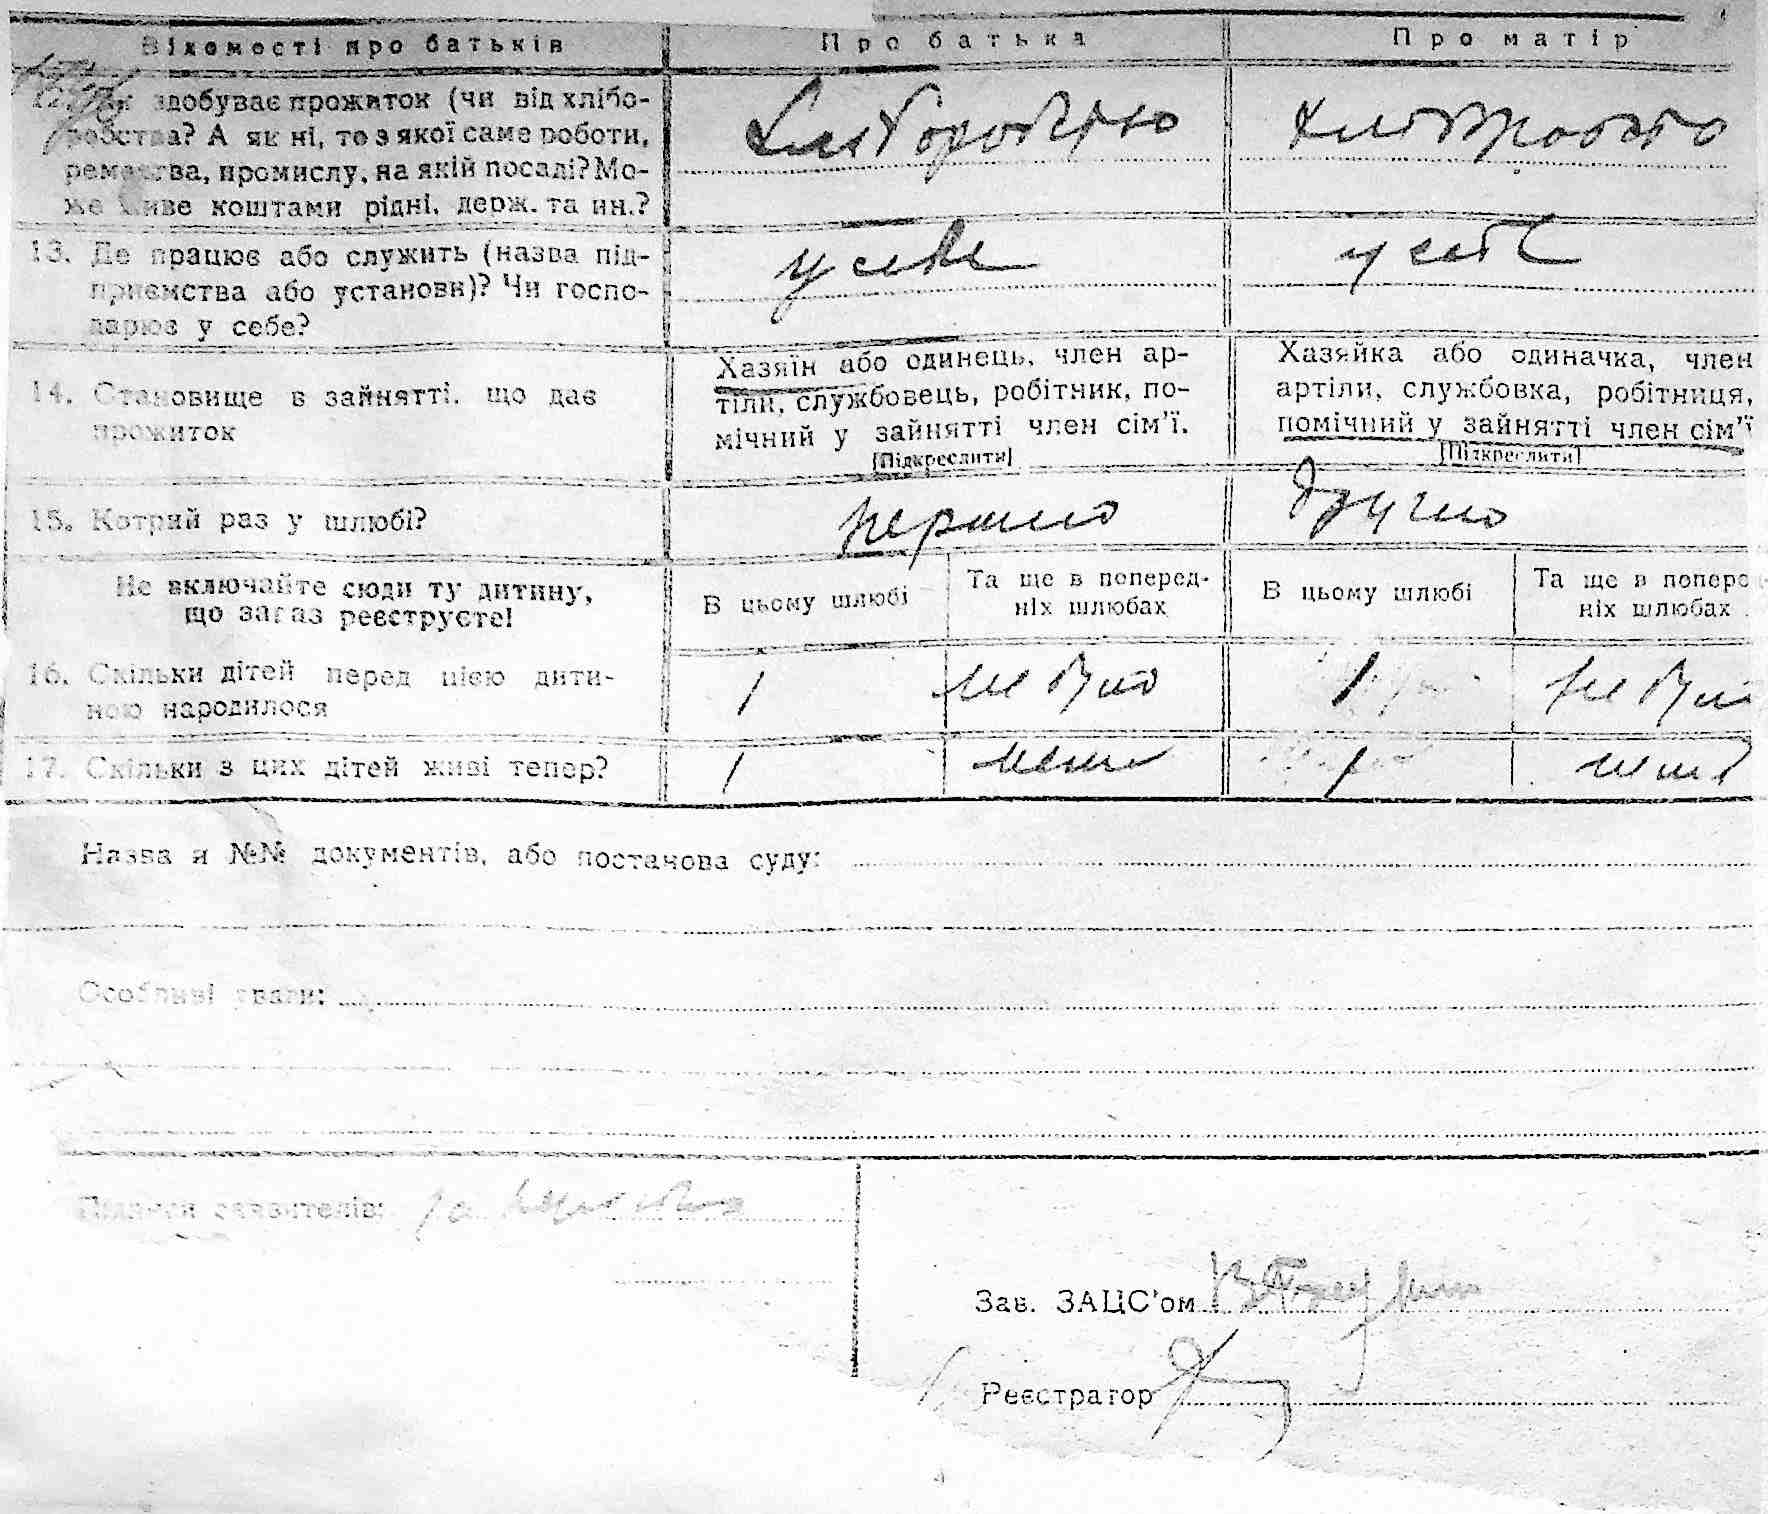 Відомості про батьків Про батька Про матір
здобуває прожиток (чи від хлібо-
робства? А як ні, то з якої саме роботи,
ремества, промислу, на якій посаді? Мо-
же живе коштами рідні, держ. та ин.?
Хліборобство Хліборобство
13. Де працює або служить (назва під-
приємства або установи)? Чи госпо-
дарює у себе?
у себе у себе
14. Становище в зайнятті, що дає
прожиток
Хазяїн або одинець, член ар-
тіли, службовець, робітник, по-
мічний у зайнятті член сім'ї.
[Підкреслити]
Хазяйка або одиначка, член
артіли, службовка, робітниця,
помічний у зайнятті член сім'ї
[Підкреслити]
15. Котрий раз у шлюбі? першо друго
Не включайте сюди ту дитину,
що зараз реєструєте!
В цьому шлюбі Та ще в поперед-
ніх шлюбах В цьому шлюбі Та ще в поперед
ніх шлюбах
16. Скільки дітей перед цією дити-
ною народилося
1 не було 1 не було
17. Скільки з цих дітей живі тепер? 1 нема 1
Назва й №№ документів, або постанова суду:
Особливі уваги:
Підписи заявителів:
Зав. ЗАЦС'ом
Реєстратор